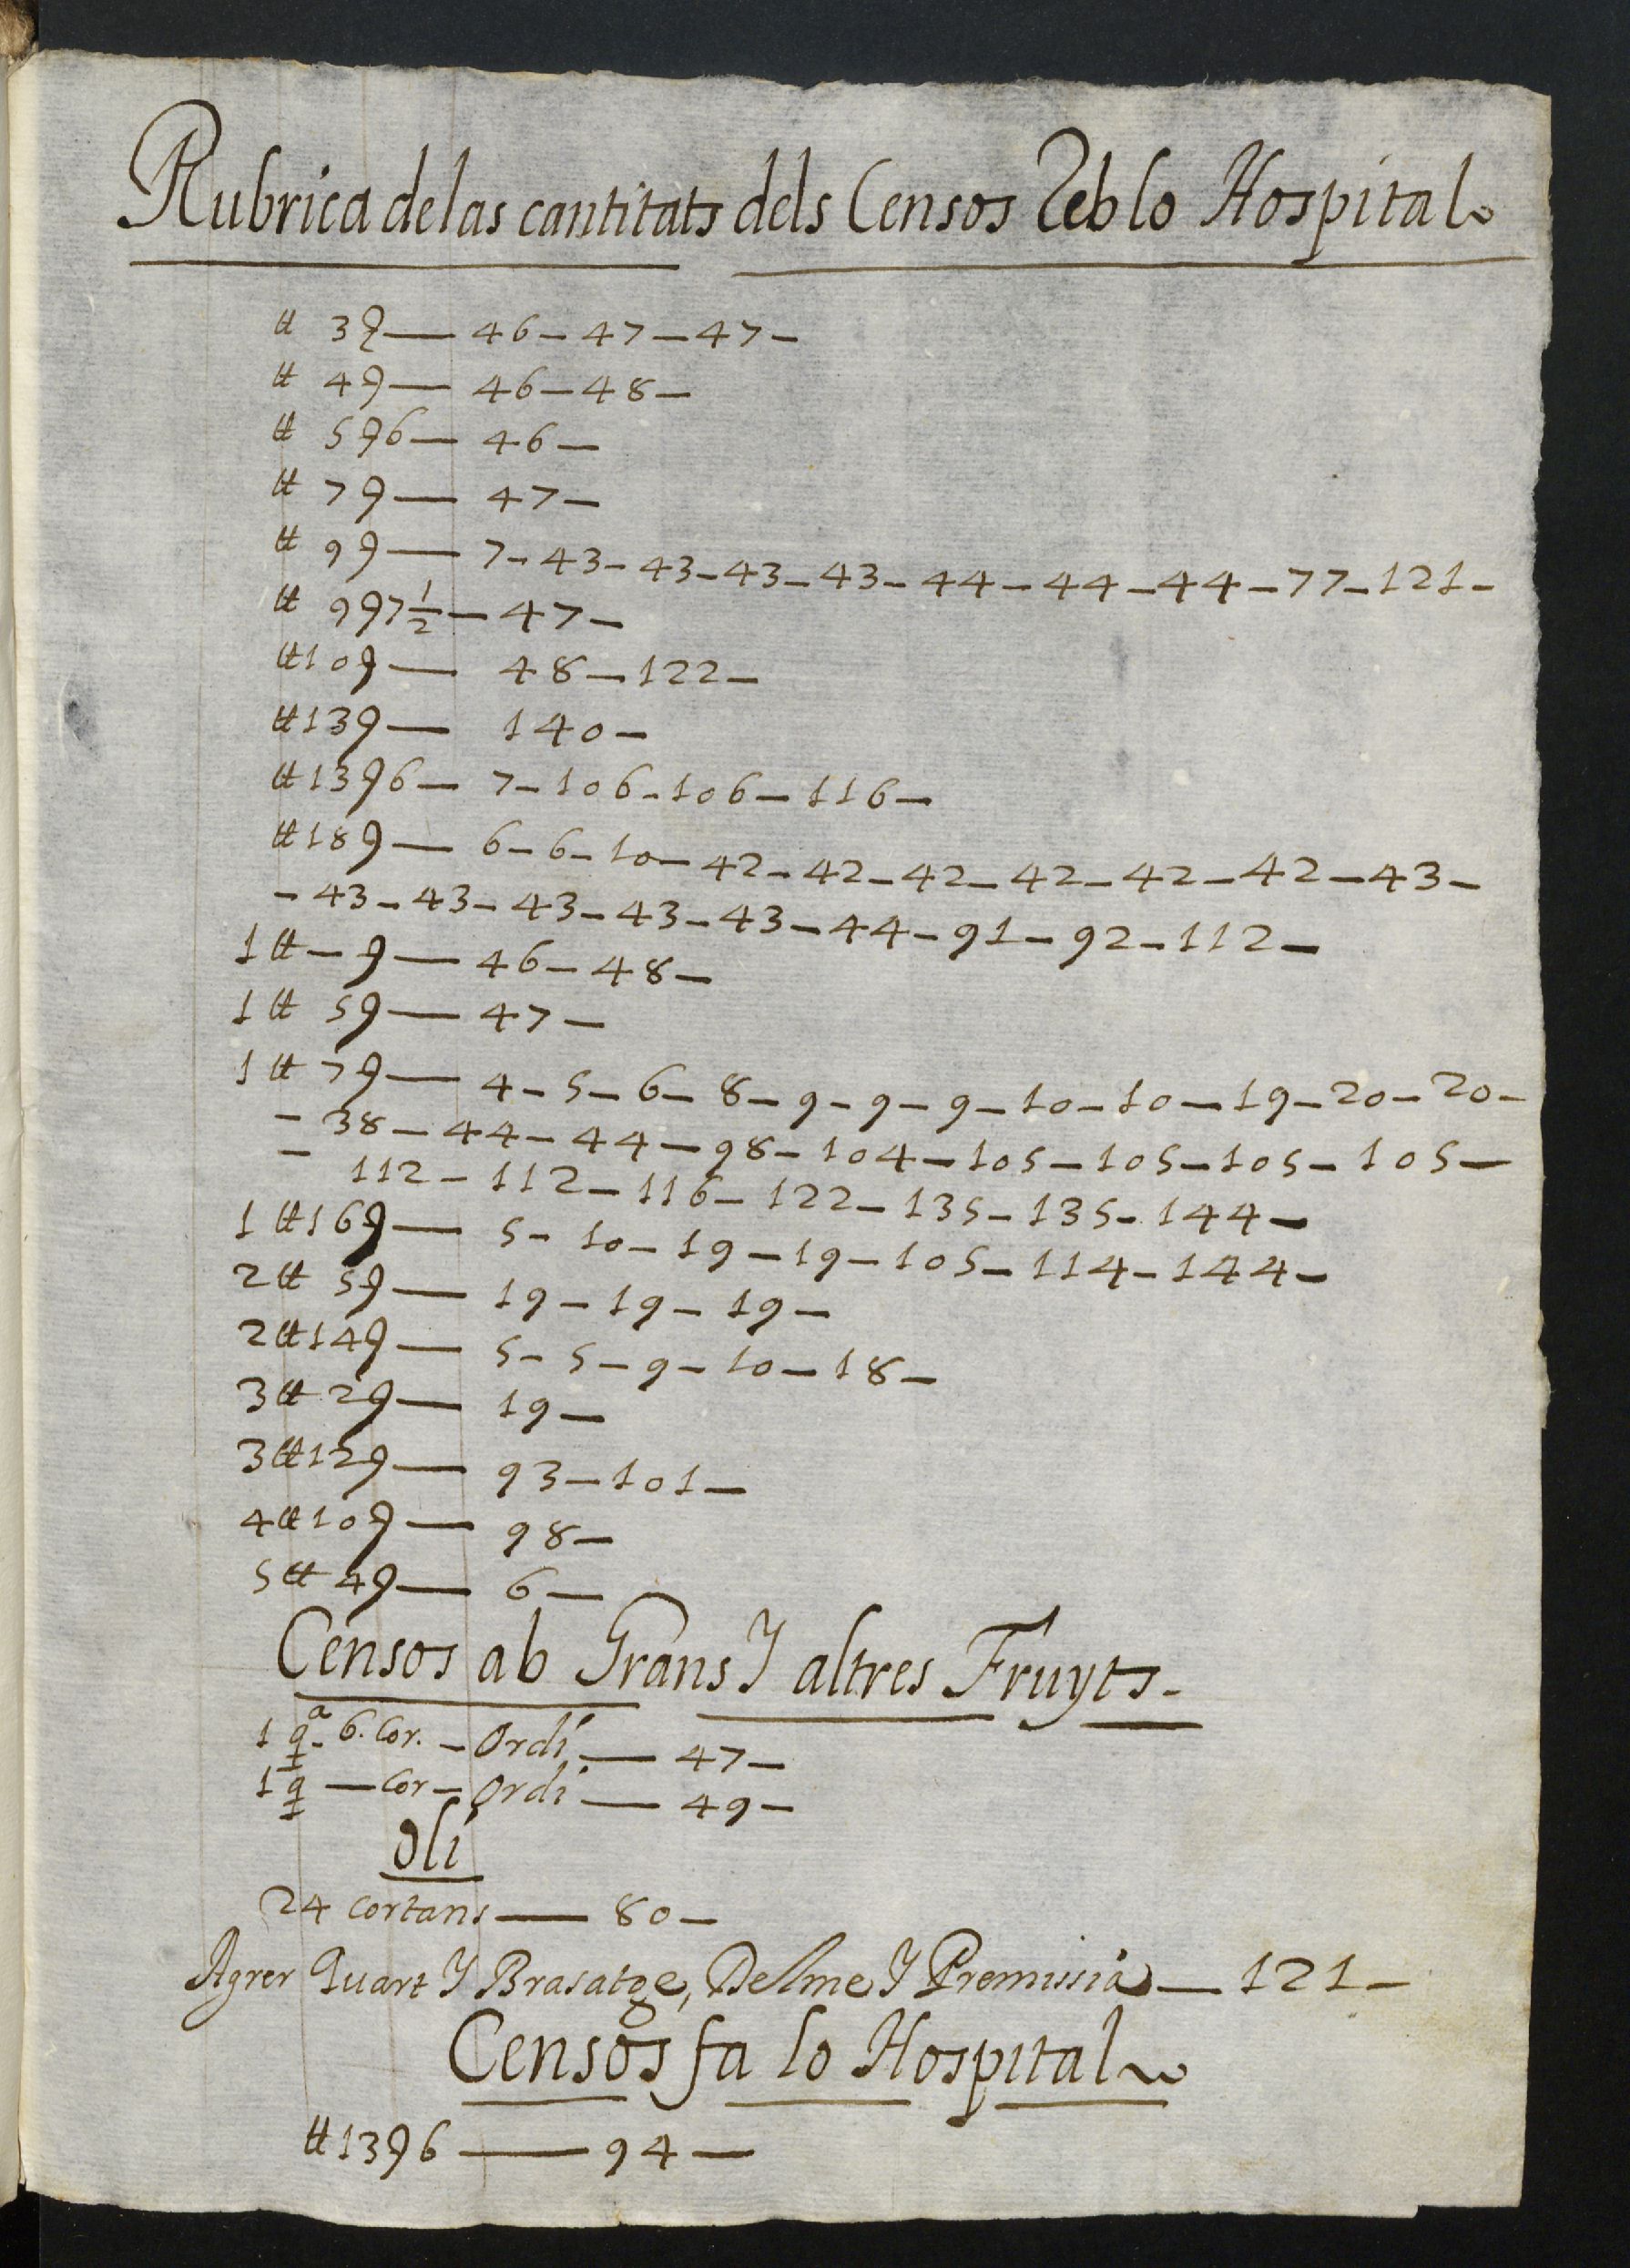 Rubrica de las cantitats dels Censos Reb lo Hospital
₶ 3 ß — 46 – 47 – 47 –
₶ 4 ß — 46 – 48 –
₶ 5 ß 6 — 46 –
₶ 7 ß — 47 –
₶ 9 ß — 7 – 43 – 43 – 43 – 43 – 44 – 44 – 44 – 77 – 121 –
₶ 9 ß 7 1/2 — 47 –
₶ 10 ß — 48 – 122 –
₶ 13 ß — 140 –
₶ 13 ß 6 — 7 – 106 – 106 – 116 –
₶ 18 ß — 6 – 6 – 10 – 42 – 42 – 42 – 42 – 42 – 42 – 43 –
– 43 – 43 – 43 – 43 – 43 – 44 – 91 – 92 – 112 –
1 ₶ – ß — 46 – 48 –
1 ₶ 5 ß — 47 –
1 ₶ 7 ß — 4 – 5 – 6 – 8 – 9 – 9 – 9 – 10 – 10 – 19 – 20 – 20 –
– 38 – 44 – 44 – 98 – 104 – 105 – 105 – 105 – 105 –
– 112 – 112 – 116 – 122 – 135 – 135 – 144 –
1 ₶ 16 ß — 5 – 10 – 19 – 19 – 105 – 114 – 144 –
2 ₶ 5 ß — 19 – 19 – 19 –
2 ₶ 14 ß — 5 – 5 – 9 – 10 – 18 –
3 ₶ 2 ß — 19 –
3 ₶ 12 ß — 93 – 101 –
4 ₶ 10 ß — 98 –
5 ₶ 4 ß — 6 –
Censos ab Grans Y altres Fruyts.
1 qª. 6. Cor. – Ordi — 47 –
1 q — Cor – Ordi — 49 –
Oli
24 cortans — 80 –
Agrer Quart Y Brasatge, Delme Y Premissia — 121 –
Censos fa lo Hospital
₶ 13 ß 6 — 94 —